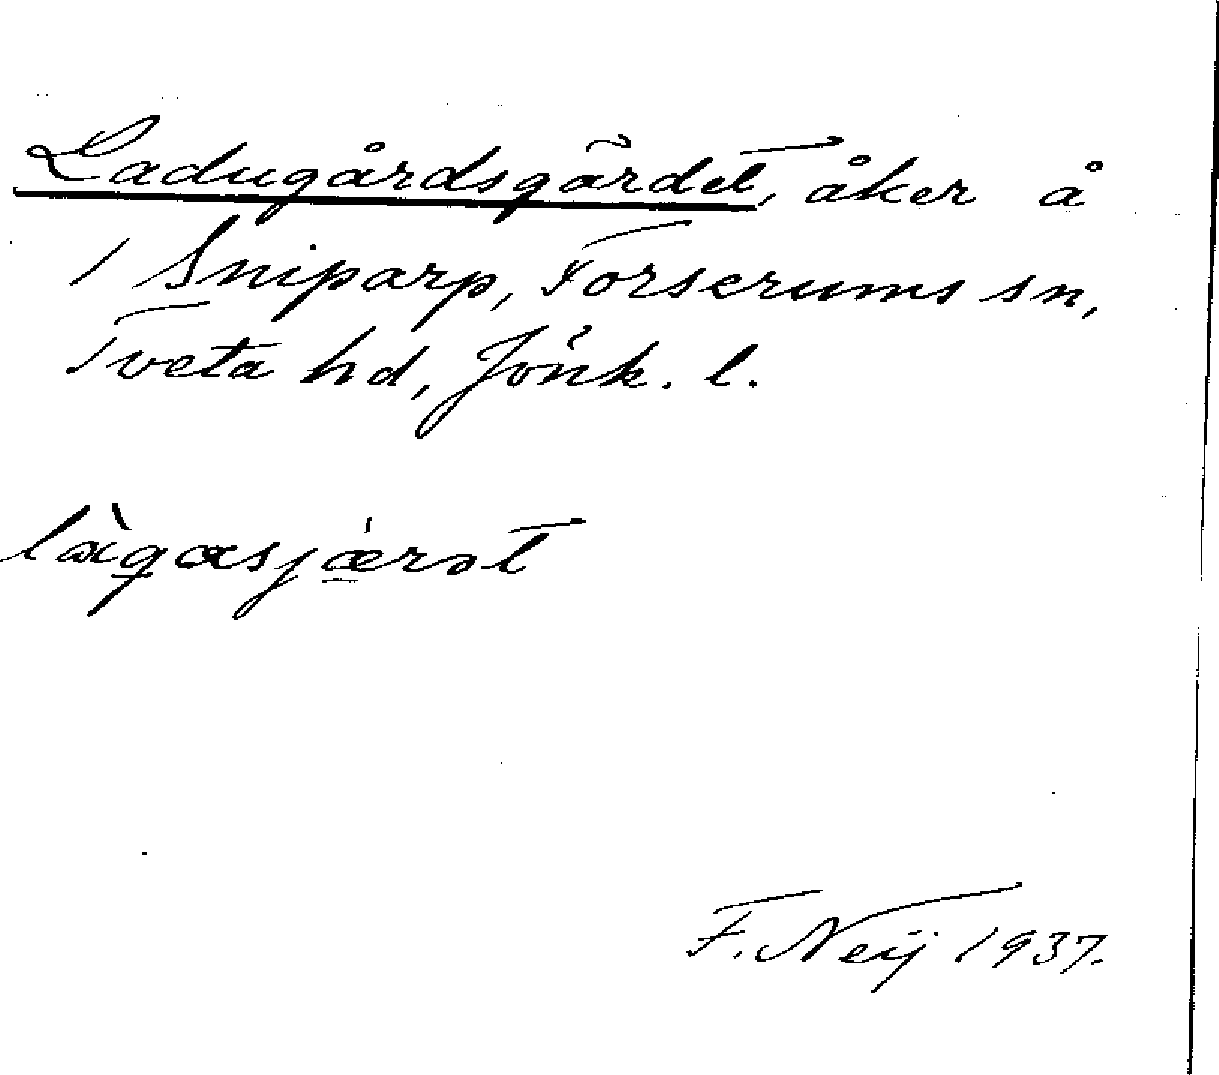 Ladugårdsgärdet, åker å
1 Sniparp, Forserums sn,
Tveta hd, Jönk. l.
làgasjǽrət
F. Neij 1937.